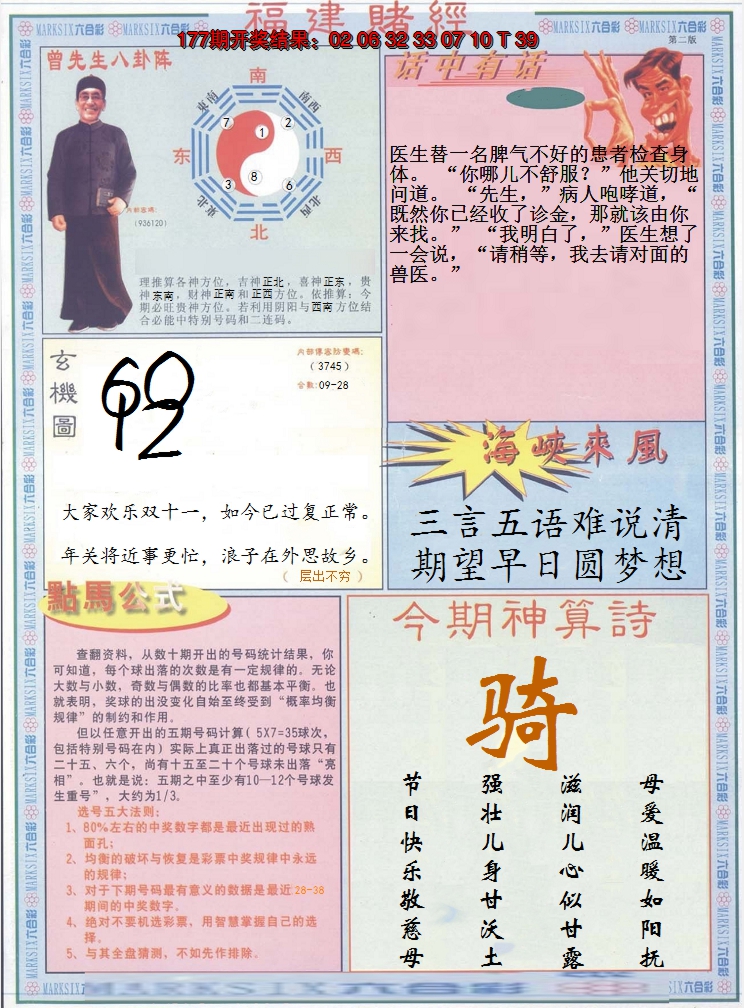 福建賭經
177期开奖结果：02 06 32 33 07 10 T 39
第二版
曾先生八卦阵
南
東南
南西
7
1
2
东
西
3
8
6
東北
西北
北
内部密碼：
（936120）
理推算各神方位，吉神正北，喜神正东，贵
神东南，财神正南和正西方位。依推算：今
期必旺贵神方位。若利用阴阳与西南方位结
合必能中特别号码和二连码。
话中有话
医生替一名脾气不好的患者检查身
体。“你哪儿不舒服？”他关切地
问道。“先生，”病人咆哮道，“
既然你已经收了诊金，那就该由你
来找。”“我明白了，”医生想了
一会说，“请稍等，我去请对面的
兽医。”
玄機圖
（3745）
合數：09-28
大家欢乐双十一，如今已过复正常。
年关将近事更忙，浪子在外思故乡。
（ 层出不穷 ）
海峽來風
三言五语难说清
期望早日圆梦想
點馬公式
查翻资料，从数十期开出的号码统计结果，你
可知道，每个球出落的次数是有一定规律的。无论
大数与小数，奇数与偶数的比率也都基本平衡。也
就表明，奖球的出没变化自始至终受到“概率均衡
规律”的制约和作用。
但以任意开出的五期号码计算（5X7=35球次，
包括特别号码在内）实际上真正出落过的号球只有
二十五、六个，尚有十五至二十个号球未出落“亮
相”。也就是说：五期之中至少有10—12个号球发
生重号”，大约为1/3。
选号五大法则：
1、80%左右的中奖数字都是最近出现过的熟
面孔；
2、均衡的破坏与恢复是彩票中奖规律中永远
的规律；
3、对于下期号码最有意义的数据是最近28-38
期间的中奖数字。
4、绝对不要机选彩票，用智慧掌握自己的选
择。
5、与其全盘猜测，不如先作排除。
今期神算詩
骑
节日快乐敬慈母
强壮儿身甘沃土
滋润儿心似甘露
母爱温暖如阳抚
MARKSIX六合彩